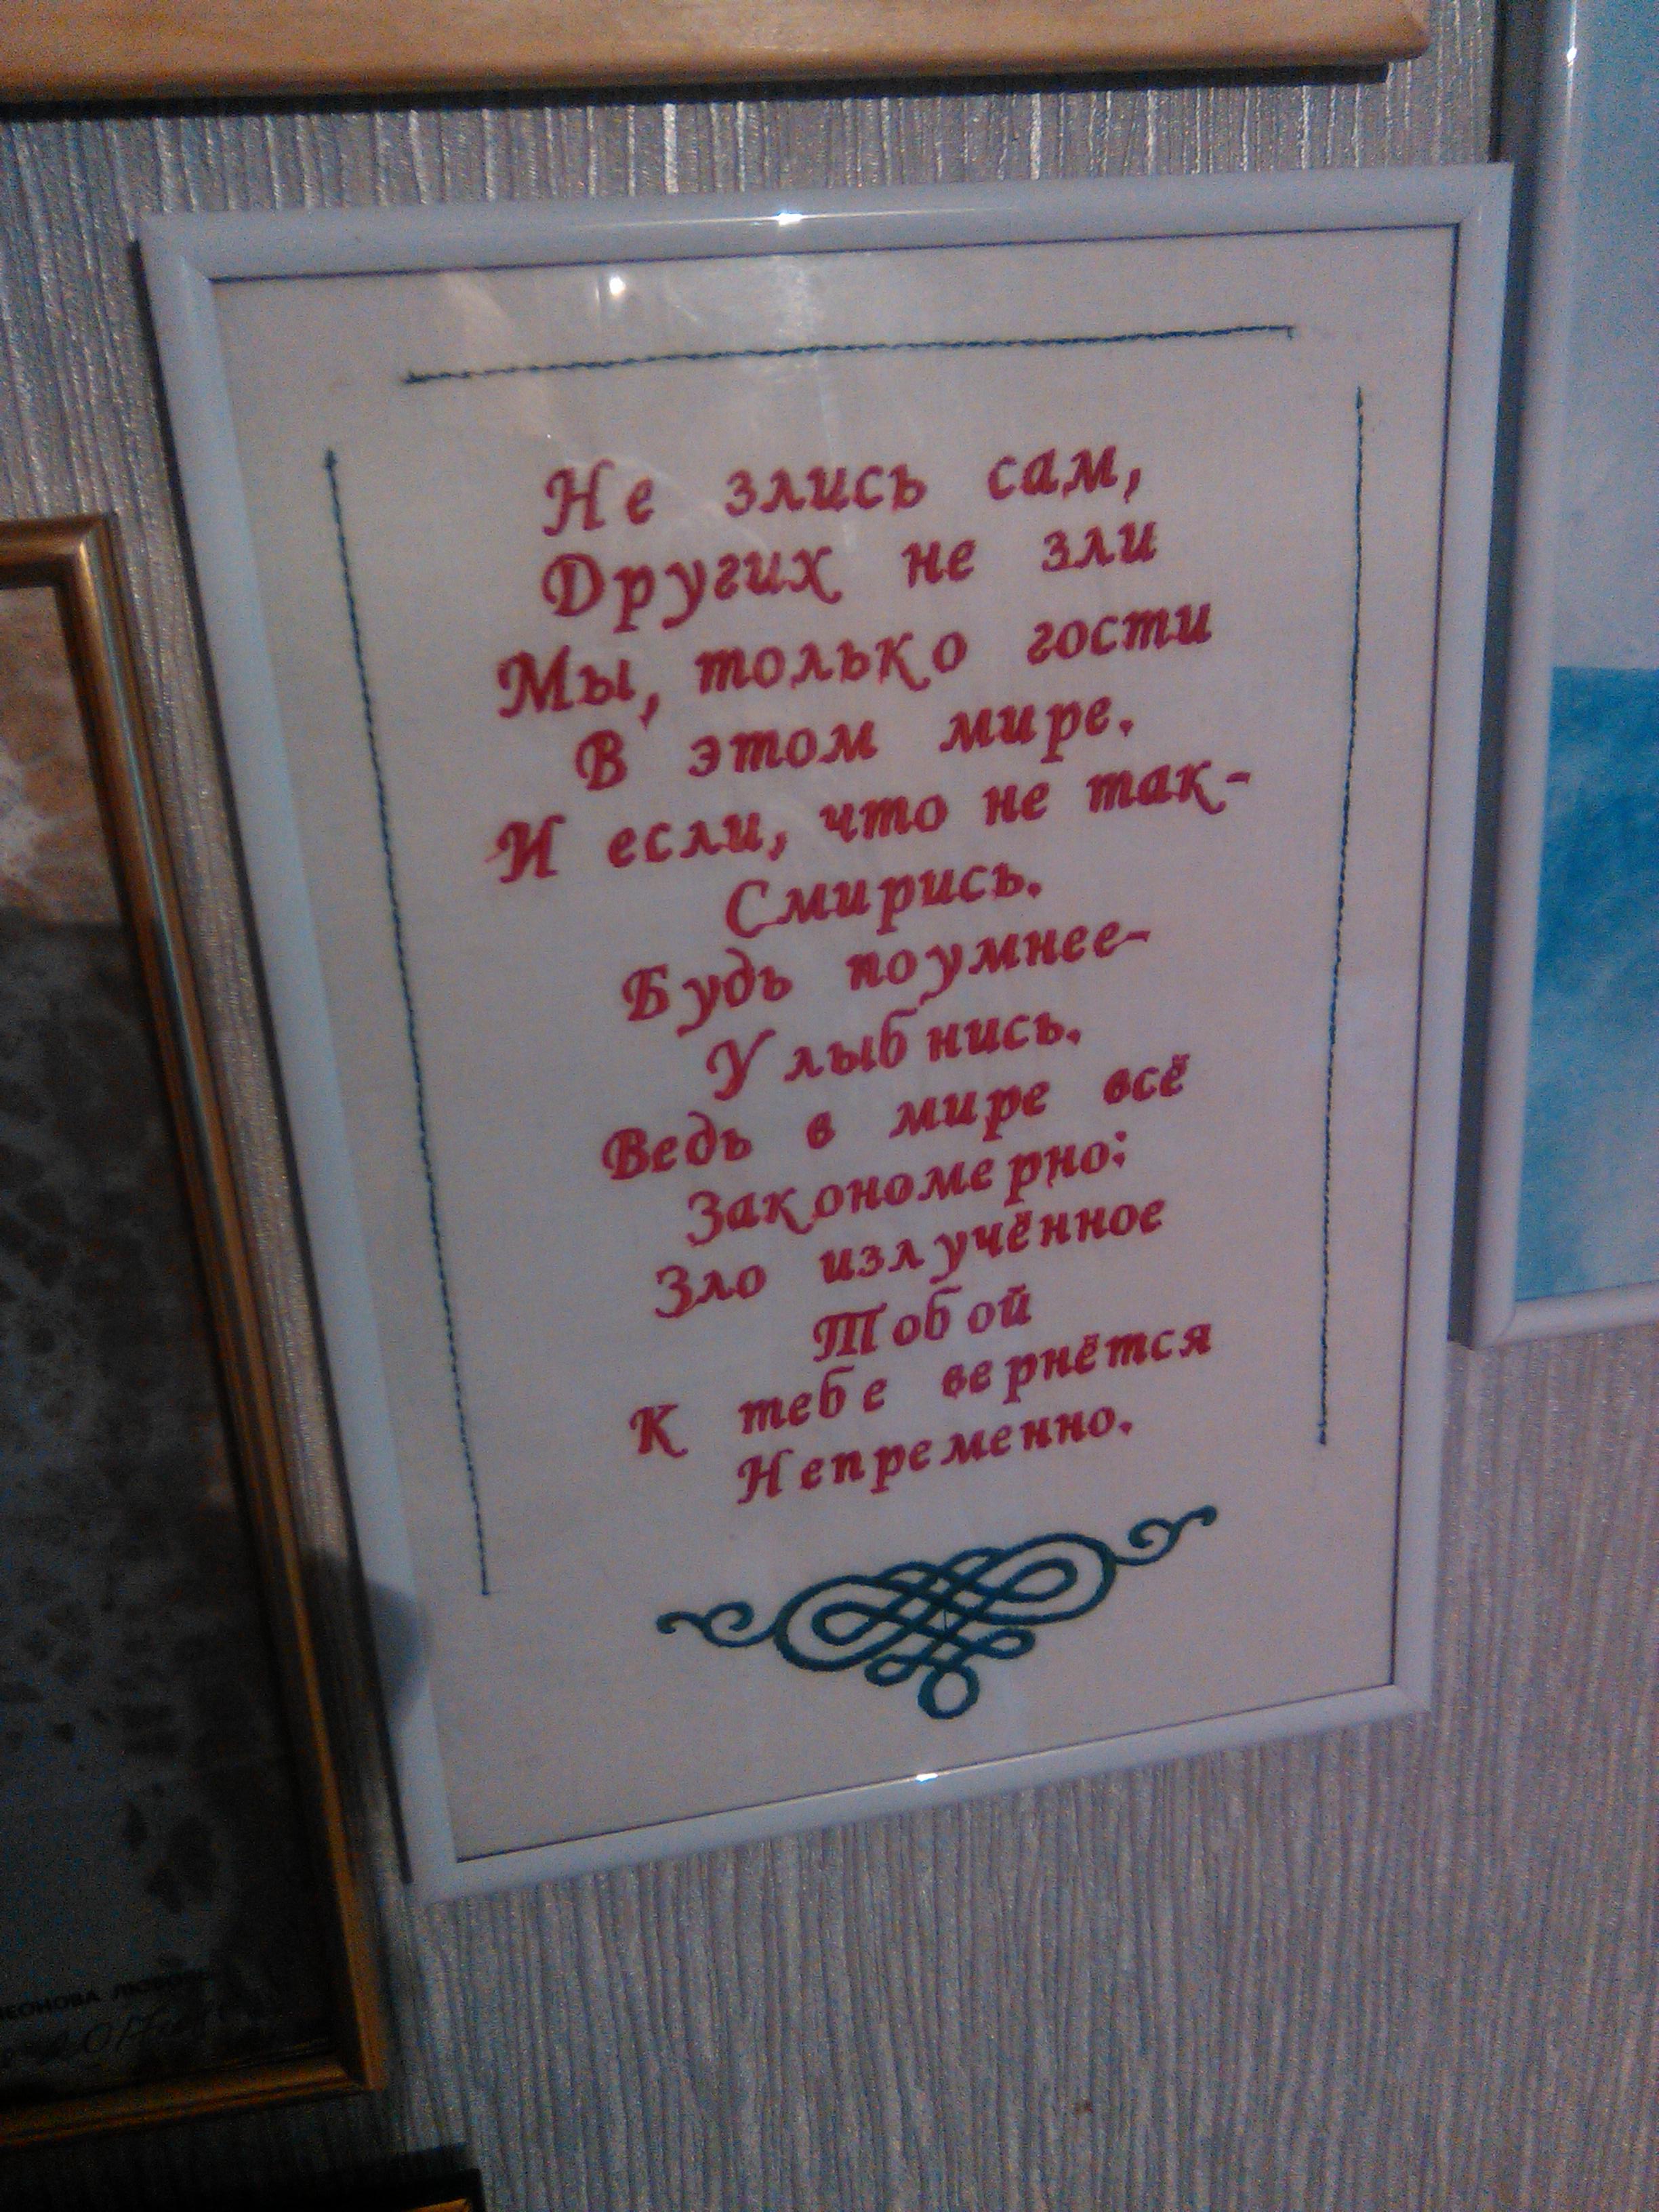 Не злись сам,
Других не зли
Мы, только гости
В этом мире.
И если, что не так-
Смирись.
Будь поумнее-
Улыбнись.
Ведь в мире всё
Закономерно:
Зло излучённое
Тобой
К тебе вернётся
Непременно.